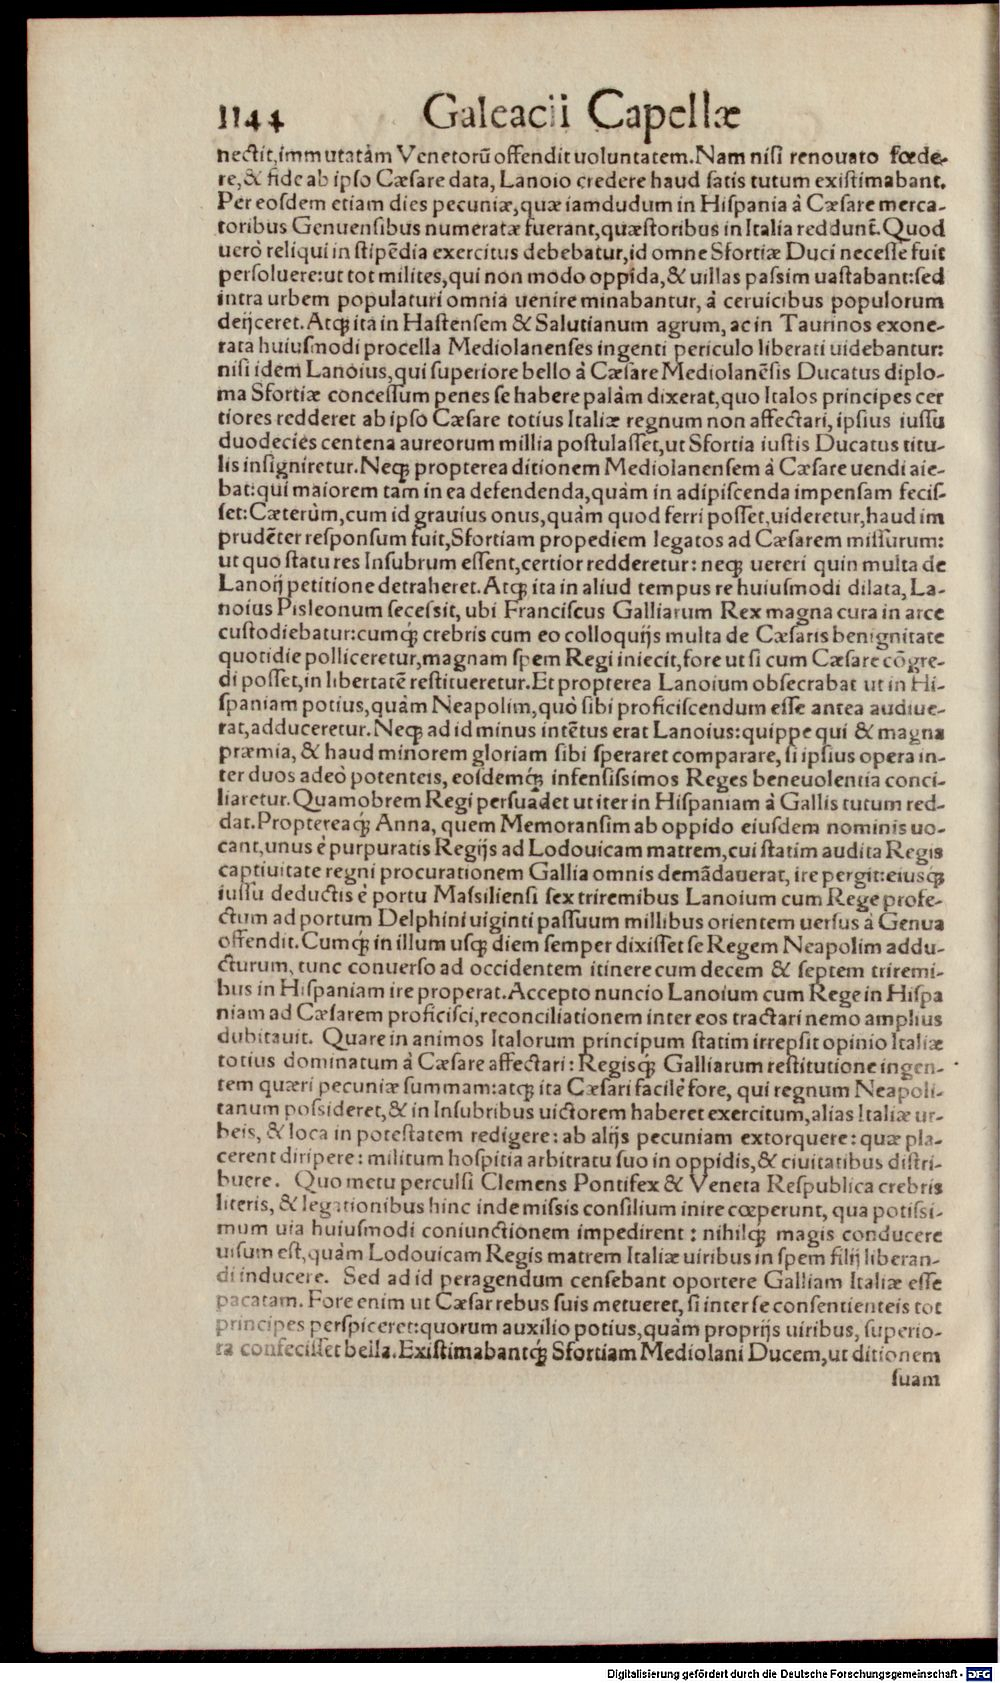 1144 Galeacii Capellæ
nectit, immutatàm Venetorũ offendit uoluntatem. Nam nisi renouato fœde-
re, & fide ab ipso Cæsare data, Lanoio credere haud satis tutum existimabant.
Per eosdem etiam dies pecuniæ, quæ iamdudum in Hispania à Cæsare merca-
toribus Genuensibus numeratæ fuerant, quæstoribus in Italia reddunt̃. Quod
uerò reliqui in stipẽdia exercitus debebatur, id omne Sfortiæ Duci necesse fuit
persoluere: ut tot milites, qui non modo oppida, & uillas passim uastabant: sed
intra urbem populaturi omnia uenire minabantur, à ceruicibus populorum
deijceret. Atq; ita in Hastensem & Salutianum agrum, ac in Taurinos exone-
rata huiusmodi procella Mediolanenses ingenti periculo liberati uidebantur:
nisi idem Lanoius, qui superiore bello à Cæsare Mediolanẽsis Ducatus diplo-
ma Sfortiæ concessum penes se habere palàm dixerat, quo Italos principes cer
tiores redderet ab ipso Cæsare totius Italiæ regnum non affectari, ipsius iussu
duodecies centena aureorum millia postulasset, ut Sfortia iustis Ducatus titu-
lis insigniretur. Neq; propterea ditionem Mediolanensem à Cæsare uendi aie-
bat: qui maiorem tam in ea defendenda, quàm in adipiscenda impensam fecis-
set: Cæterùm, cum id grauius onus, quàm quod ferri posset, uideretur, haud im
prudẽter responsum fuit, Sfortiam propediem legatos ad Cæsarem missurum:
ut quo statu res Insubrum essent, certior redderetur: neq; uereri quin multa de
Lanoij petitione detraheret. Atq; ita in aliud tempus re huiusmodi dilata, La-
noius Pisleonum secessit, ubi Franciscus Galliarum Rex magna cura in arce
custodiebatur: cumq́; crebris cum eo colloquijs multa de Cæsaris benignitate
quotidie polliceretur, magnam spem Regi iniecit, fore ut si cum Cæsare cõgre-
di posset, in libertatẽ restitueretur. Et propterea Lanoium obsecrabat ut in Hi-
spaniam potius, quàm Neapolim, quò sibi proficiscendum esse antea audiue-
rat, adduceretur. Neq; ad id minus intẽtus erat Lanoius: quippe qui & magna
præmia, & haud minorem gloriam sibi speraret comparare, si ipsius opera in-
ter duos adeò potenteis, eosdemq́; infensissimos Reges beneuolentia conci-
liaretur. Quamobrem Regi persuadet ut iter in Hispaniam à Gallis tutum red-
dat. Proptereaq́; Anna, quem Memoransim ab oppido eiusdem nominis uo-
cant, unus è purpuratis Regijs ad Lodouicam matrem, cui statim audita Regis
captiuitate regni procurationem Gallia omnis demãdauerat, ire pergit: eiusq́;
iussu deductis è portu Massiliensi sex triremibus Lanoium cum Rege profe-
ctum ad portum Delphini uiginti passuum millibus orientem uersus à Genua
offendit. Cumq́; in illum usq; diem semper dixisset se Regem Neapolim addu-
cturum, tunc conuerso ad occidentem itinere cum decem & septem triremi-
bus in Hispaniam ire properat. Accepto nuncio Lanoium cum Rege in Hispa
niam ad Cæsarem proficisci, reconciliationem inter eos tractari nemo amplius
dubitauit. Quare in animos Italorum principum statim irrepsit opinio Italiæ
totius dominatum à Cæsare affectari: Regisq́; Galliarum restitutione ingen-
tem quæri pecuniæ summam: atq; ita Cæsari facile fore, qui regnum Neapoli-
tanum possideret, & in Insubribus uictorem haberet exercitum, alias Italiæ ur-
beis, & loca in potestatem redigere: ab alijs pecuniam extorquere: quæ pla-
cerent diripere: militum hospitia arbitratu suo in oppidis, & ciuitatibus distri-
buere. Quo metu perculsi Clemens Pontifex & Veneta Respublica crebris
literis, & legationibus hinc inde missis consilium inire cœperunt, qua potissi-
mum uia huiusmodi coniunctionem impedirent: nihilq́; magis conducere
uisum est, quàm Lodouicam Regis matrem Italiæ uiribus in spem filij liberan-
di inducere. Sed ad id peragendum censebant oportere Galliam Italiæ esse
pacatam. Fore enim ut Cæsar rebus suis metueret, si inter se consentienteis tot
principes perspiceret: quorum auxilio potius, quàm proprijs uiribus, superio-
ra confecisset bella. Existimabantq́; Sfortiam Mediolani Ducem, ut ditionem
suam
Digitalisierung gefördert durch die Deutsche Forschungsgemeinschaft - DFG